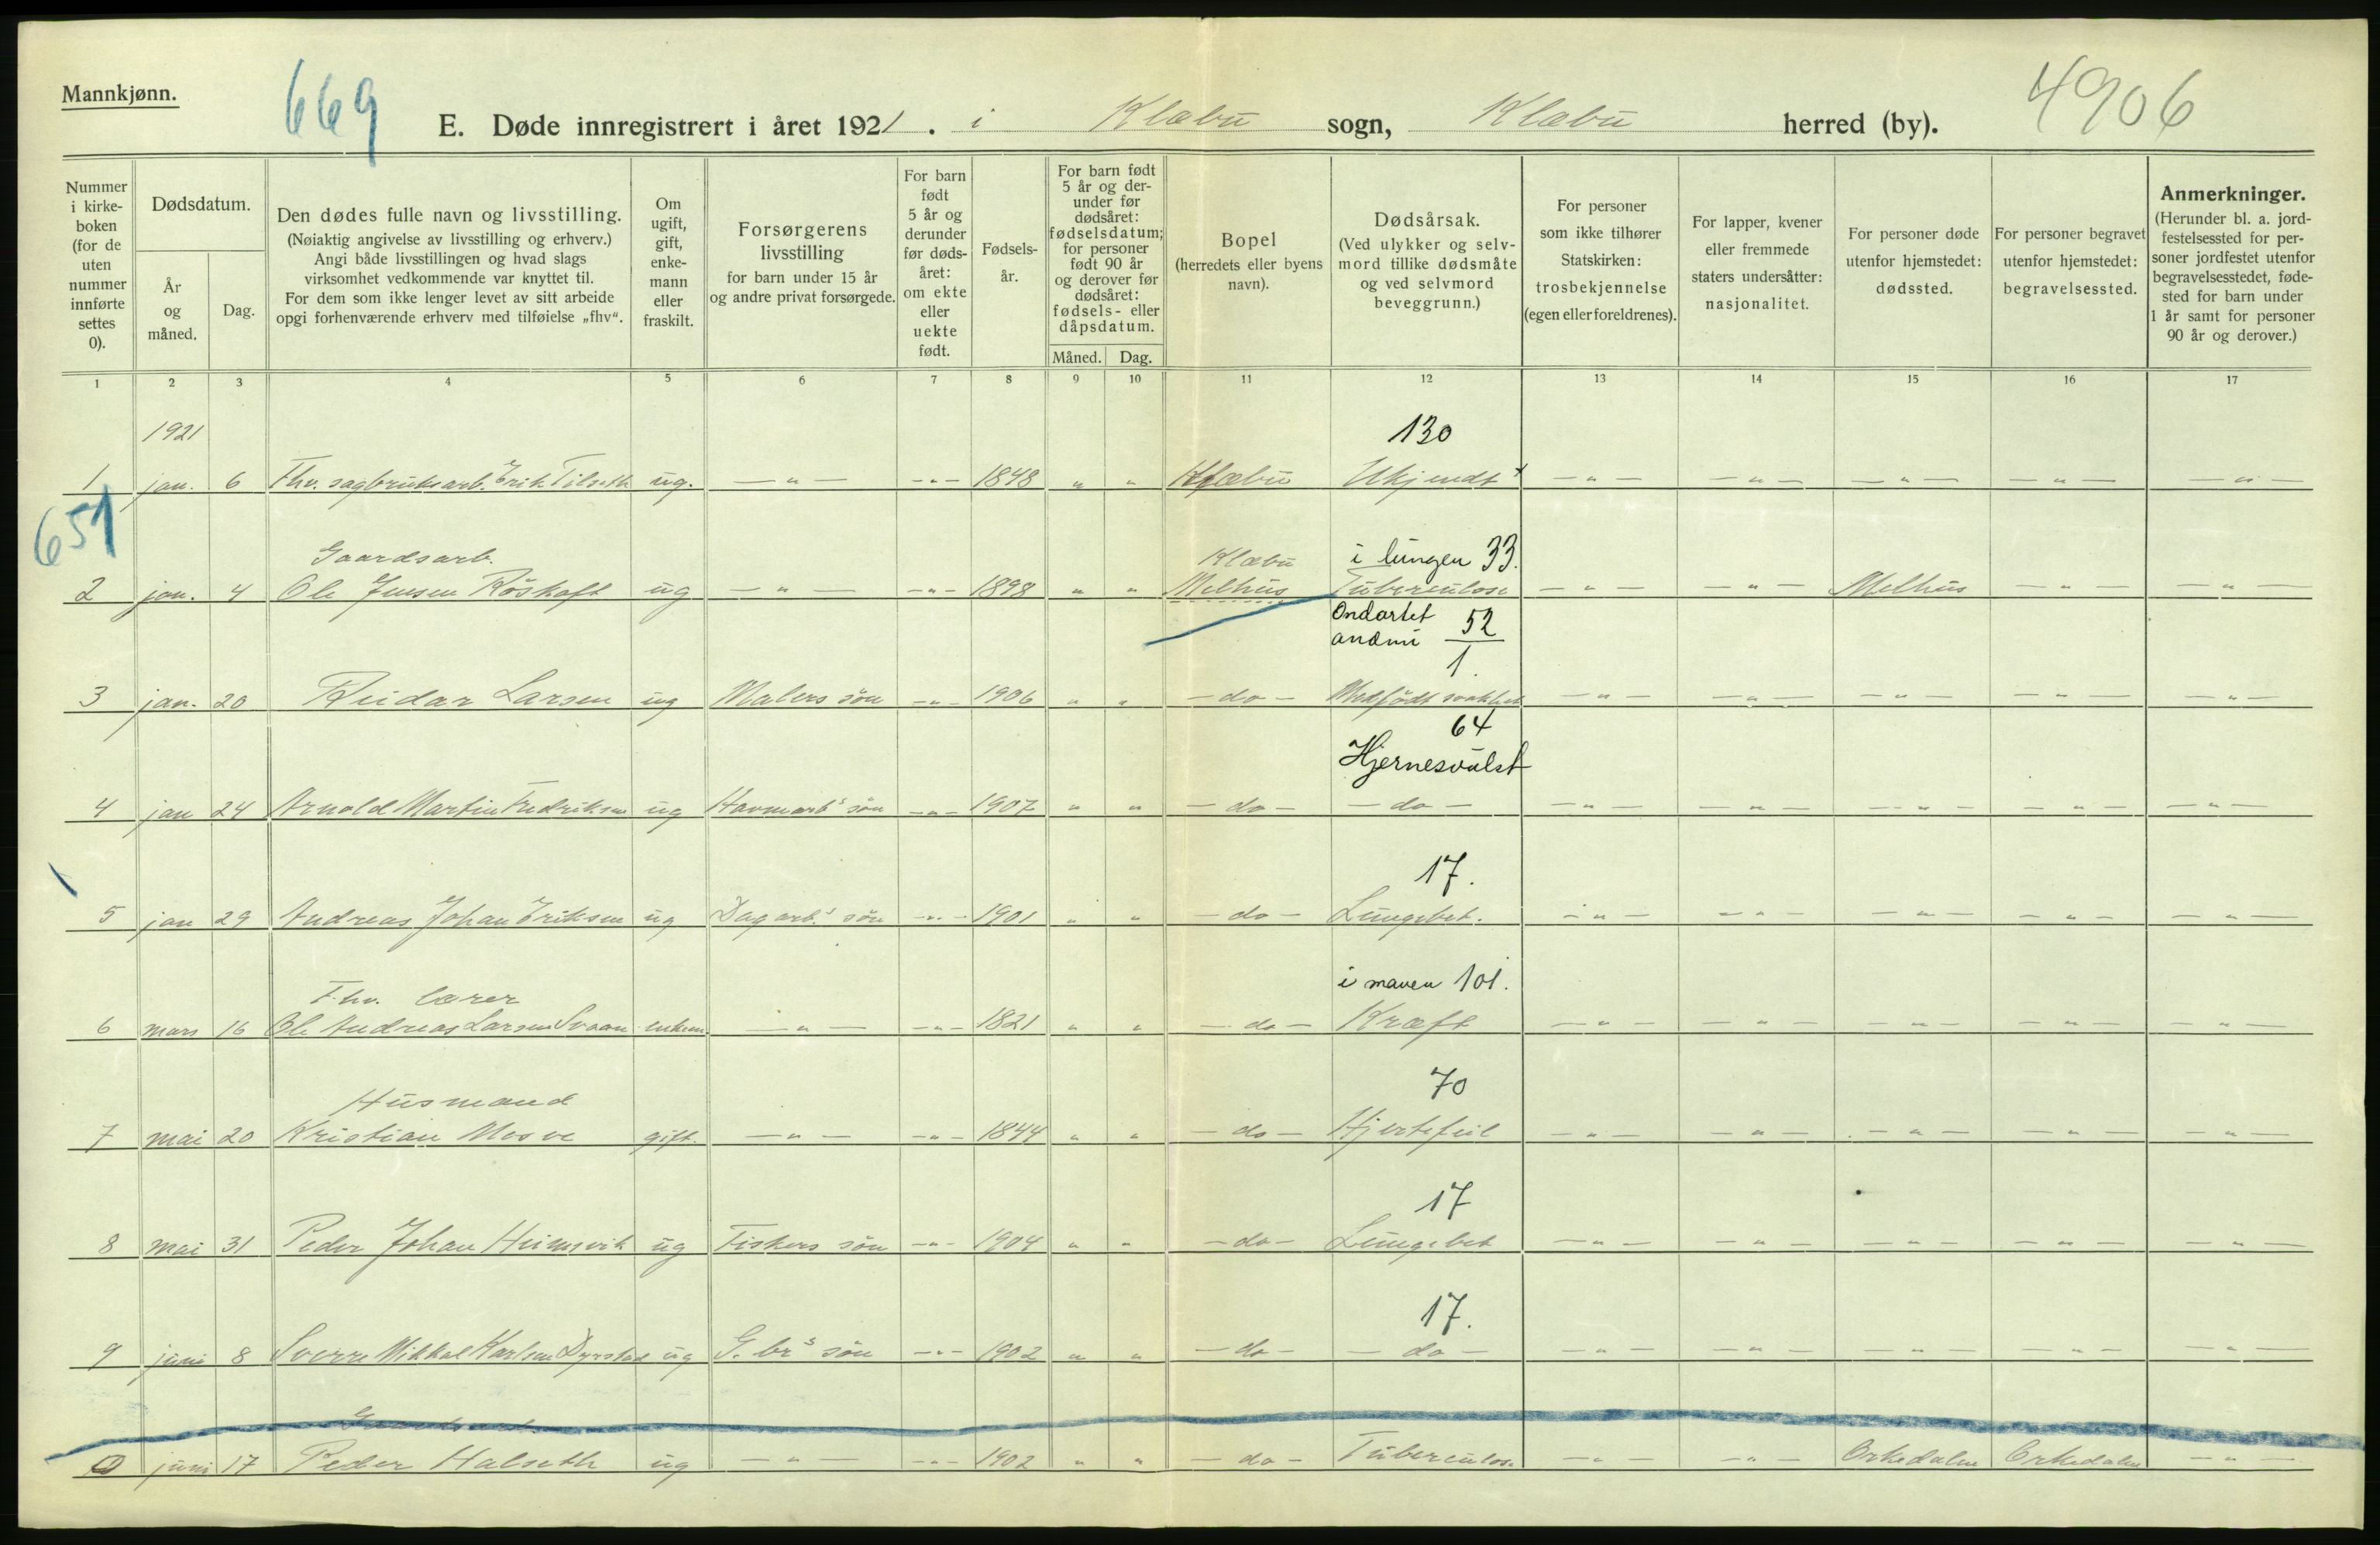 Mannkjønn.
669
E. Døde innregistrert i året 1921. i Klæbu sogn, Klæbu herred (by).
4906
Nummer i kirke- boken (for de uten nummer innførte settes 0).
Dødsdatum.
År og måned.
Dag.
Den dødes fulle navn og livsstilling.
(Nøiaktig angivelse av livsstilling og erhverv.)
Angi både livsstillingen og hvad slags
virksomhet vedkommende var knyttet til.
For dem som ikke lenger levet av sitt arbeide
opgi forhenværende erhverv med tilføielse „fhv“.
Om ugift, gift, enke- mann eller fraskilt.
Forsørgerens livsstilling
for barn under 15 år
og andre privat forsørgede.
For barn født 5 år og derunder før døds- året: om ekte eller uekte født.
Fødsels- år.
For barn født 5 år og der- under før dødsåret: fødselsdatum; for personer født 90 år og derover før dødsåret: fødsels- eller dåpsdatum.
Måned.
Dag.
Bopel
(herredets eller byens navn).
Dødsårsak.
(Ved ulykker og selv- mord tillike dødsmåte og ved selvmord beveggrunn.)
For personer som ikke tilhører Statskirken: trosbekjennelse (egen eller foreldrenes).
For lapper, kvener eller fremmede staters undersåtter: nasjonalitet.
For personer døde utenfor hjemstedet: dødssted.
For personer begravet utenfor hjemstedet: begravelsessted.
Anmerkninger.
(Herunder bl. a. jord- festelsessted for per- soner jordfestet utenfor begravelsesstedet, føde- sted for barn under 1 år samt for personer 90 år og derover.)
1 2 3 4 5 6 7 8 9 10 11 12 13 14 15 16 17
1921 130
1 jan. 6 Fhv. sagbruksarb. Erik Tilseth ug. — „ — — „ — 1848 „ „ Klæbu Ukjendt + — „ — — „ — — „ — — „ — — „ —
651
Gaardsarb. Klæbu i lungen 33.
2 jan. 4 Ole Jensen Röskaft ug — „ — — „ — 1898 „ „ Melhus Tuberculose — „ — — „ — Melhus — „ — — „ —
Ondartet anæmi 52
1.
3 jan. 20 Reidar Larsen ug Malers sön — „ — 1906 „ „ — do — Medfödt svakhet — „ — — „ — — „ — — „ — — „ —
64
Hjernesvulst
4 jan 24 Arnold Martin Fredriksen ug Havnearb's sön — „ — 1907 „ „ — do — — do — — „ — — „ — — „ — — „ — — „ —
17.
5 jan 29 Andreas Johan Eriksen ug Dagarb.s sön — „ — 1901 „ „ — do — Lungebet. — „ — — „ — — „ — — „ — — „ —
i maven 101.
Fhv. lærer
6 mars 16 Ole Andreas Larsen Svaan enkem — „ — — „ — 1821 „ „ — do — Kræft — „ — — „ — — „ — — „ — — „ —
70
Husmand
7 mai 20 Kristian Mosve gift. — „ — — „ — 1844 „ „ — do — Hjertefeil — „ — — „ — — „ — — „ — — „ —
17
8 mai 31 Peder Johan Heimsvik ug Fiskers sön — „ — 1904 „ „ — do — Lungebet — „ — — „ — — „ — — „ — — „ —
17.
9 juni 8 Sverre Mikkal Karlsen Dyrstad ug G. br's sön — „ — 1902 „ „ — do — — do — — „ — — „ — — „ — — „ — — „ —
Gaardsarb.
0 juni 17 Peder Halseth ug — „ — — „ — 1902 „ „ — do — Tuberculose — „ — — „ — Orkedalen Orkedalen — „ —